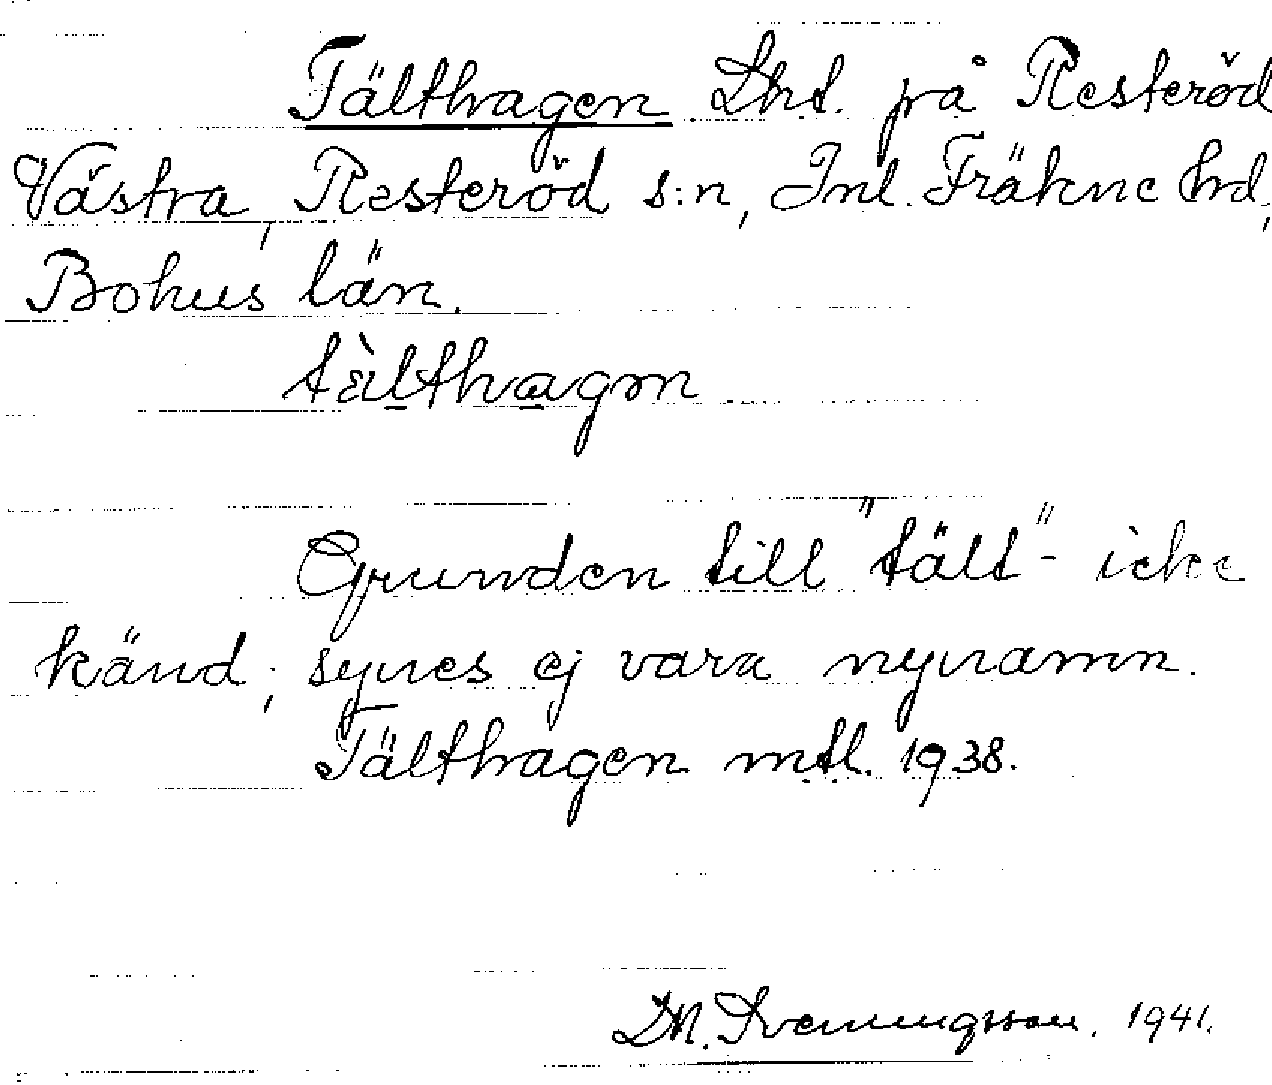 Tälthagen Lht. på Resteröd
Västra, Resteröd s:n, Inl. Fräkne hd,
Bohus län.
tæ̀lthagɷn
Grunden till "tält"- icke
känd; synes ej vara nynamn.
Tälthagen mtl. 1938.
Svenningsson. 1941.